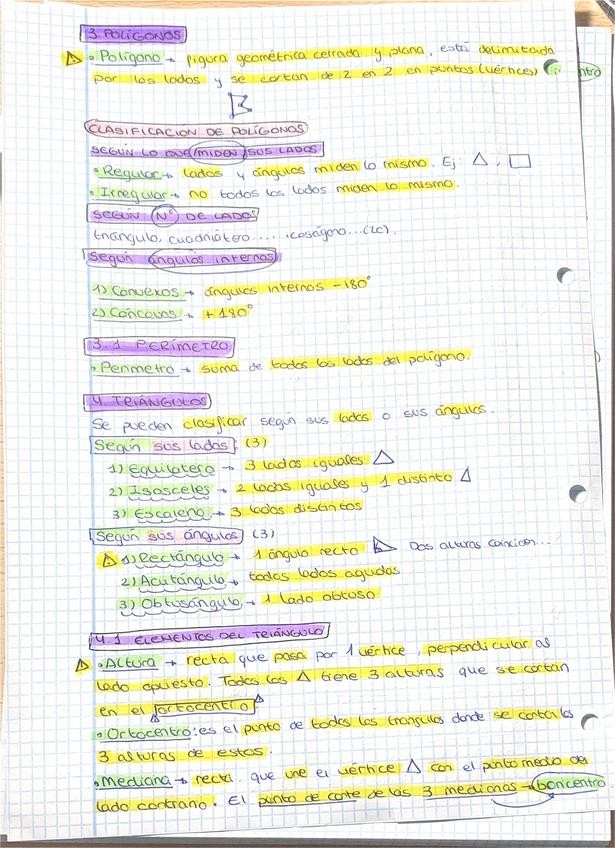 3. POLÍGONOS
• Polígono → figura geométrica cerrada y plana, está delimitada
por los lados y se cortan de 2 en 2 en puntos (vértices)
ntro
CLASIFICACIÓN DE POLÍGONOS
SEGÚN LO QUE MIDEN SUS LADOS
• Regular → lados y ángulos miden lo mismo. Ej: △, □
• Irregular → no todos los lados miden lo mismo.
SEGÚN Nº DE LADOS
triángulo, cuadrilátero.... icoságono...(20).
Según ángulos internos
1) Convexos → ángulos internos -180°
2) Cóncavos → +180°
3.1 PERÍMETRO
• Perímetro → suma de todos los lados del polígono.
4. TRIÁNGULOS
Se pueden clasificar según sus lados o sus ángulos.
Según sus lados: (3)
1) Equilátero → 3 lados iguales △
2) Isósceles → 2 lados iguales y 1 distinto △
3) Escaleno → 3 lados distintos
Según sus ángulos (3)
1) Rectángulo → 1 ángulo recto Dos alturas coinciden...
2) Acutángulo → todos lados agudos
3) Obtusángulo → 1 lado obtuso
4.1 ELEMENTOS DEL TRIÁNGULO
• Altura → recta que pasa por 1 vértice, perpendicular al
lado opuesto. Todos los △ tiene 3 alturas que se cortan
en el ortocentro
• Ortocentro: es el punto de todos los triángulos donde se corta las
3 alturas de estos.
• Mediana → recta que une el vértice △ con el punto medio del
lado contrario. El punto de corte de las 3 medianas → baricentro